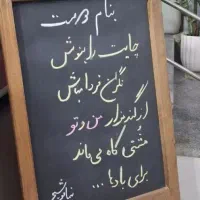 بنام دوست
چایت را بنوش
نگران فردا مباش
از گندمزار من و تو
مُشتی کاه می‌ماند
برای بادها ...
نیما یوشیج